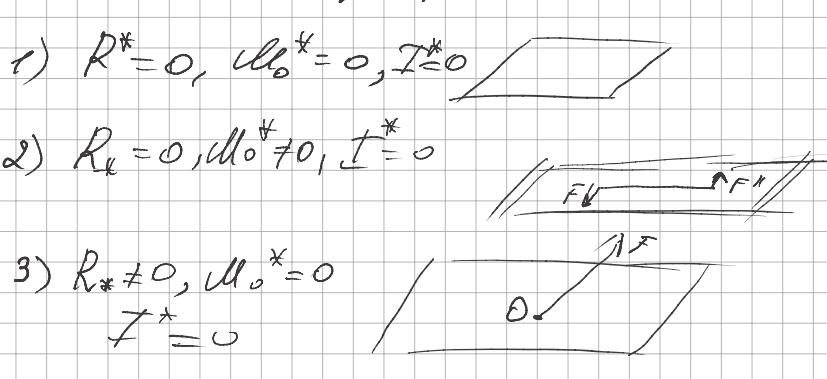 1) R* = 0, M₀* = 0, I* = 0
2) R* = 0, M₀* ≠ 0, I* = 0
F F*
3) R* ≠ 0, M₀* = 0
F
I* = 0
O